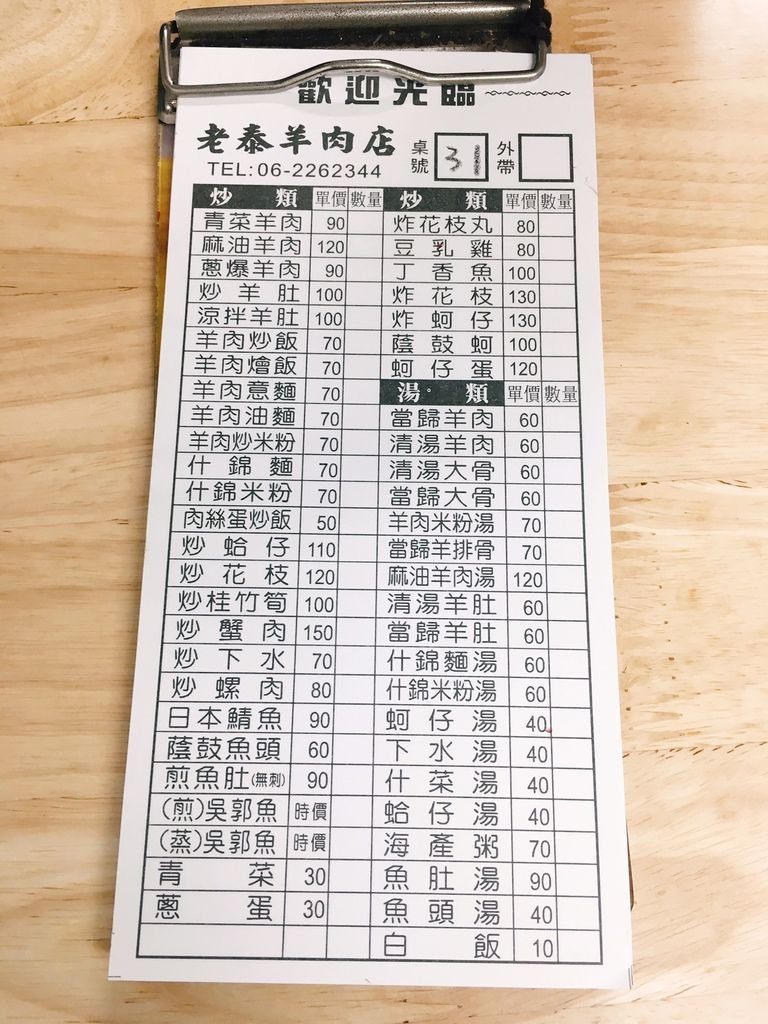 歡迎光臨
老泰羊肉店
TEL:06-2262344
桌號 31 外帶
炒類 單價 數量
青菜羊肉 90
麻油羊肉 120
蔥爆羊肉 90
炒羊肚 100
涼拌羊肚 100
羊肉炒飯 70
羊肉燴飯 70
羊肉意麵 70
羊肉油麵 70
羊肉炒米粉 70
什錦麵 70
什錦米粉 70
肉絲蛋炒飯 50
炒蛤仔 110
炒花枝 120
炒桂竹筍 100
炒蟹肉 150
炒下水 70
炒螺肉 80
日本鯖魚 90
蔭鼓魚頭 60
煎魚肚(無刺) 90
(煎)吳郭魚 時價
(蒸)吳郭魚 時價
青菜 30
蔥蛋 30
炒類 單價 數量
炸花枝丸 80
豆乳雞 80
丁香魚 100
炸花枝 130
炸蚵仔 130
蔭鼓蚵 100
蚵仔蛋 120
湯類 單價 數量
當歸羊肉 60
清湯羊肉 60
清湯大骨 60
當歸大骨 60
羊肉米粉湯 70
當歸羊排骨 70
麻油羊肉湯 120
清湯羊肚 60
當歸羊肚 60
什錦麵湯 60
什錦米粉湯 60
蚵仔湯 40
下水湯 40
什菜湯 40
蛤仔湯 40
海產粥 70
魚肚湯 90
魚頭湯 40
白飯 10